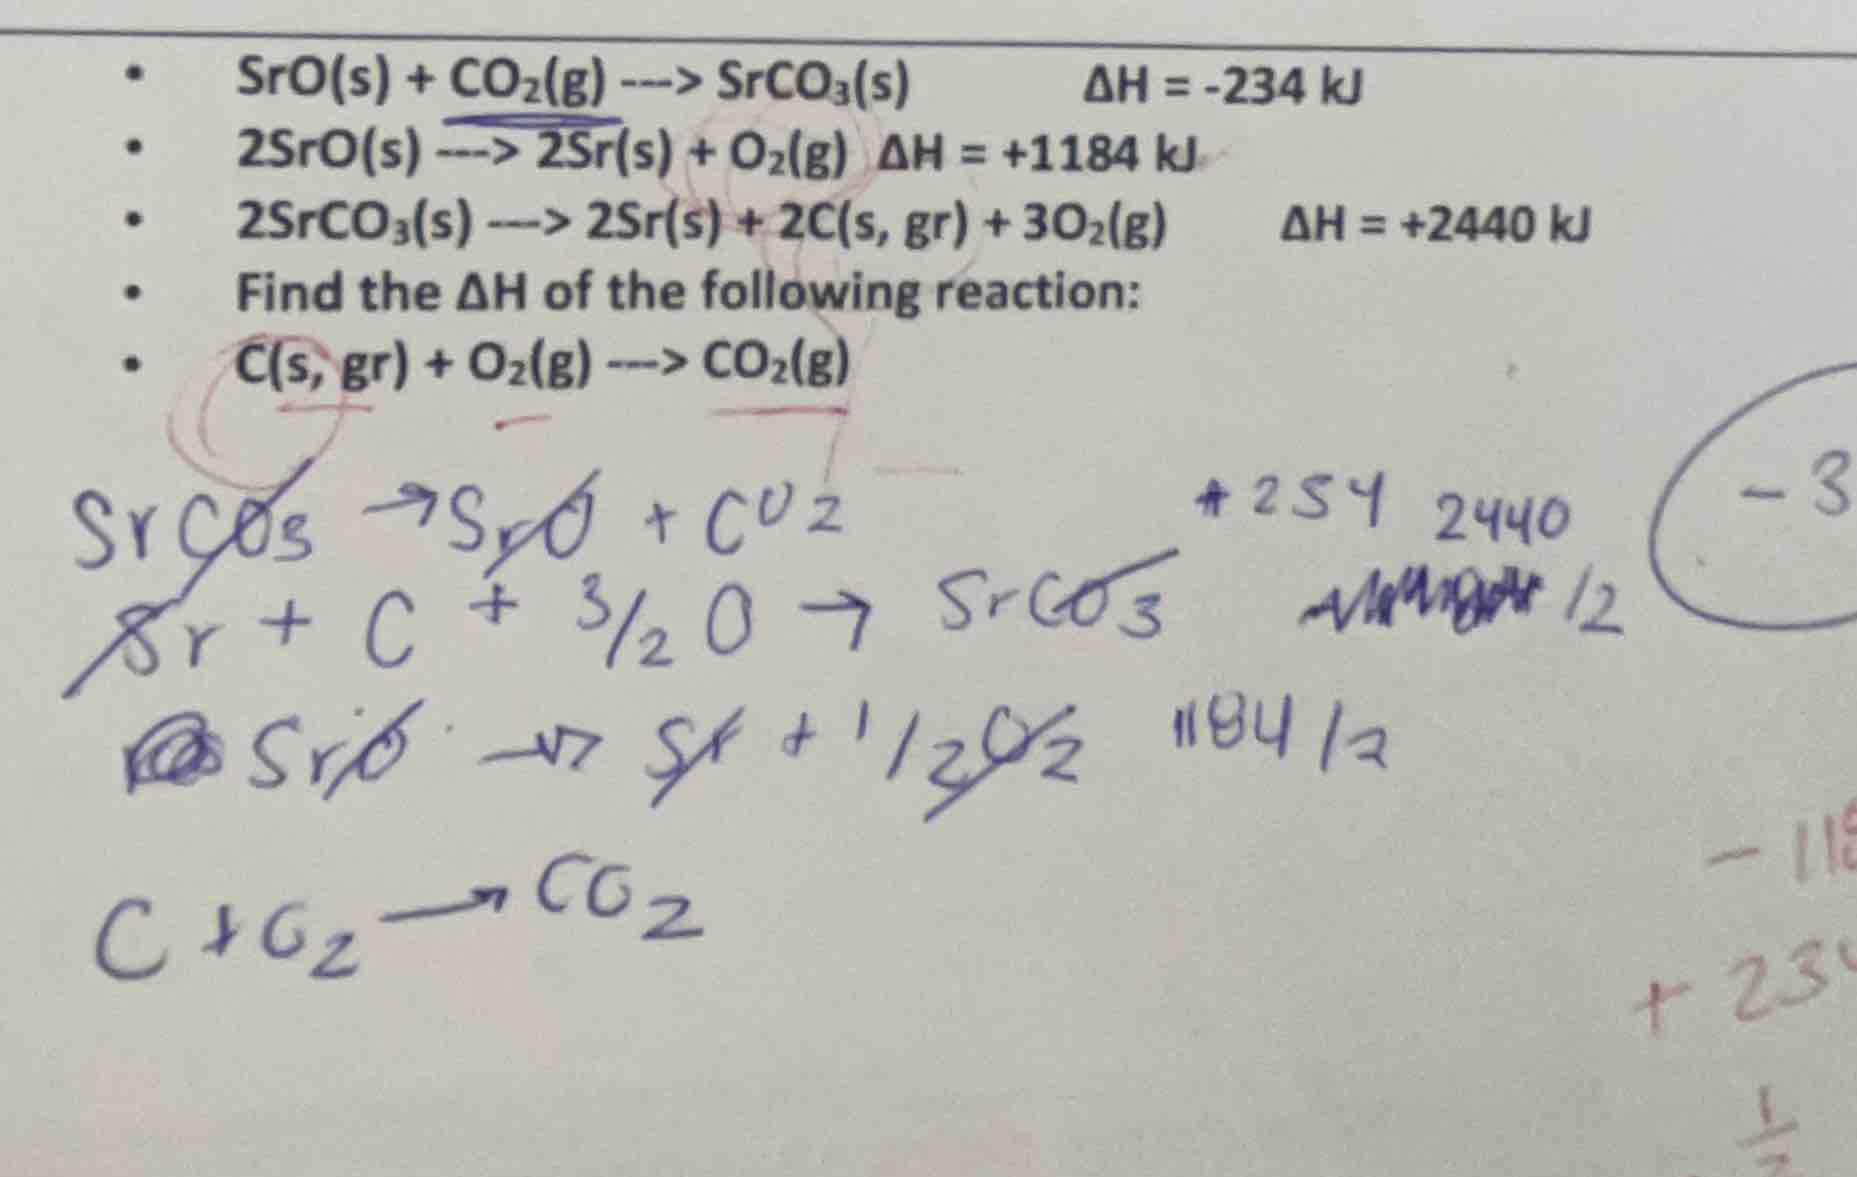 • SrO(s) + CO₂(g) ---> SrCO₃(s) ΔH = -234 kJ
• 2SrO(s) ---> 2Sr(s) + O₂(g) ΔH = +1184 kJ
• 2SrCO₃(s) ---> 2Sr(s) + 2C(s, gr) + 3O₂(g) ΔH = +2440 kJ
• Find the ΔH of the following reaction:
• C(s, gr) + O₂(g) ---> CO₂(g)
SrCO₃ → SrO + CO₂ +234 2440
Sr + C + 3/2 O → SrCO₃ /2
- 3
SrO → Sr + 1/2 O₂ 1184/2
C + O₂ → CO₂
- 118
+ 234
1/2